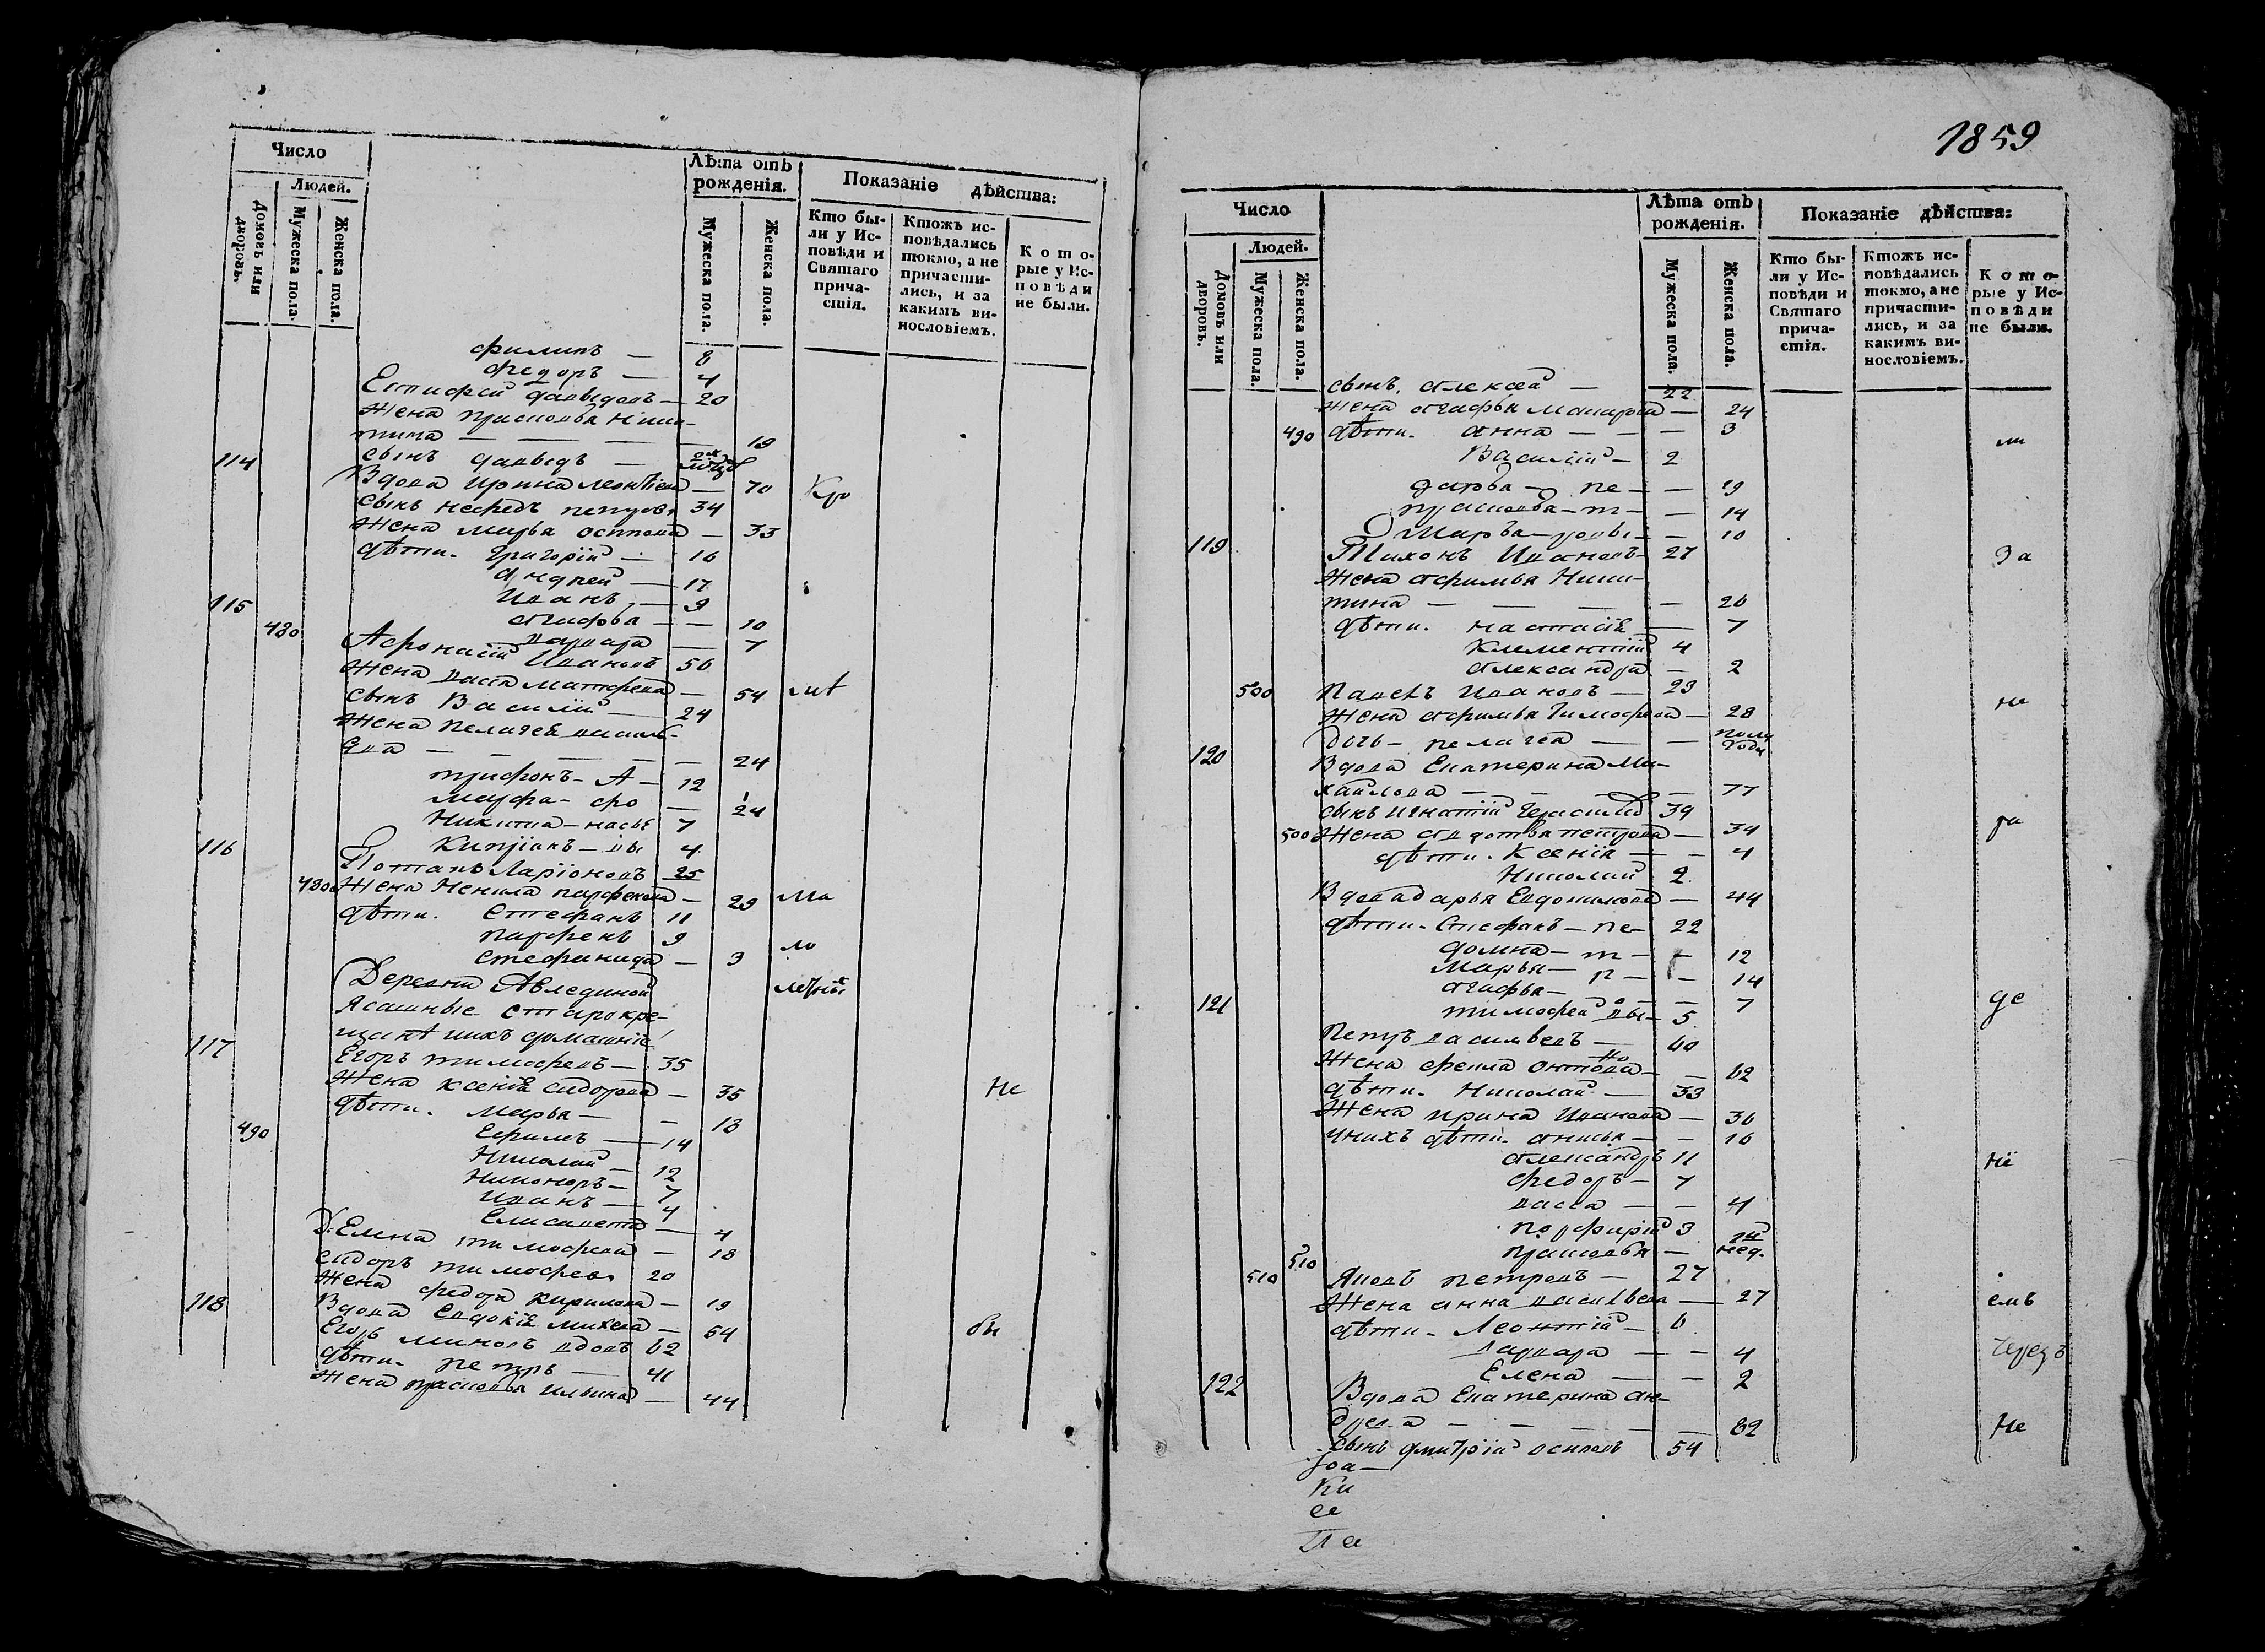 Число
Лѣта отъ рожденія.
Показаніе дѣйства:
Людей.
Домовъ или дворовъ.
Мужеска пола.
Женска пола.
Мужеска пола.
Женска пола.
Кто были у Исповѣди и Святаго причастія.
Ктожъ исповѣдались токмо, а не причастились, и за какимъ винословіемъ.
Которые у Исповѣди не были.
филипъ — 8
федоръ — 4
Епифей давыдовъ — 20
Жена прасковья Ники-
тина — — — — 19
сынъ давыдъ —
114
Вдова Ирина леонтіева — 70 Кро
сынъ нефедъ петровъ 34
Жена марья осипова — 33
дѣти. Григорій — 16
андрей — 17
Иванъ, — 9
агафья — — 10
115 480
варвара — 7
Афонасій Ивановъ 56
Жена васса матфеева — 54
сынъ Василій — 24
Жена пелагея василь-
ева — — — — 24
трифонъ — А — 12
марфа — фо —
Никита — насье 7
Кипріанъ — вы 4
116
Потапъ Ларіоновъ 25
480 Жена Ненила парфенова — 29 Ма
дѣти. Стефанъ 11
парфенъ 9 ло
стефанида — 3
Деревни Авлединой
Ясашные старокре-
щане ихъ домашніе
117
Егоръ тимофеевъ — 35
Жена ксенія сидорова — 35 Не
дѣти. марья — — 13
490
Ефимъ — 14
Николай — 12
Никоноръ — 7
Иванъ — 4
Елисавета — 4
Д. Елена тимофеева — 18
сидоръ тимофеевъ 20
Жена федора кирилова — 19
118
Вдова Евдокія михеева — 64
Егоръ миновъ вдовъ 62 бы
дѣти. петръ — 41
Жена прасковья ильина — 44
1859
Число
Лѣта отъ рожденія.
Показаніе дѣйства:
Людей.
Домовъ или дворовъ.
Мужеска пола.
Женска пола.
Мужеска пола.
Женска пола.
Кто были у Исповѣди и Святаго причастія.
Ктожъ исповѣдались токмо, а не причастились, и за какимъ винословіемъ.
Которые у Исповѣди не были.
сынъ. алексей — 22
Жена агафья макарова — 24
490 дѣти. анна — — — 3 ли
Василій — 2
дарья — пе — — 19
прасковья — т — — 14
Марья — ровы — — 10
119
Тихонъ Ивановъ — 27 За
Жена афимья Ники-
тина — — — — 26
дѣти. настасія — 7
Клементій 4
александра — 2
500 Павелъ Ивановъ — 29 не
Жена афимья тимофеева — 28
Дочь — пелагея — — полу года
120
Вдова Екатерина Ми-
хайлова — — — — 77
сынъ игнатій Герасимовъ 39
500 Жена авдотья петрова — 34 ра
дѣти. Ксенія — — 4
Николай 2
Вдова дарья Евдокимова — 44
дѣти. Стефанъ — пе — 22
домна — т — — 12
Марья — р — — 14
агафья — — 7
121
тимофей — вы — 5 де
Петръ васильевъ — 60
Жена фекла антонова — — 62
дѣти. Николай — 33
Жена ирина Иванова — 36
у нихъ дѣти. анисья — — 16
александръ 11 Нѣ
федоръ — 7
васса — — 4
порфирій 3
прасковья — нед.
510
510 Яковъ петровъ — 27
Жена анна васильева — 27 емъ
дѣти. Леонтій — 6
варвара — — 4 Чрезъ
Елена — — 2
122
Вдова Екатерина ан-
дреева — — — — 82 Не
сынъ дмитрій осиповъ 54
Іоа —
Ки